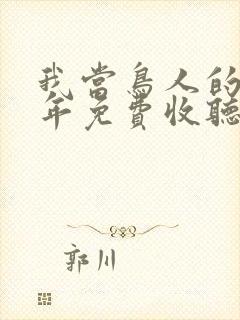 我當鳥人的
年免費收聽
郭川